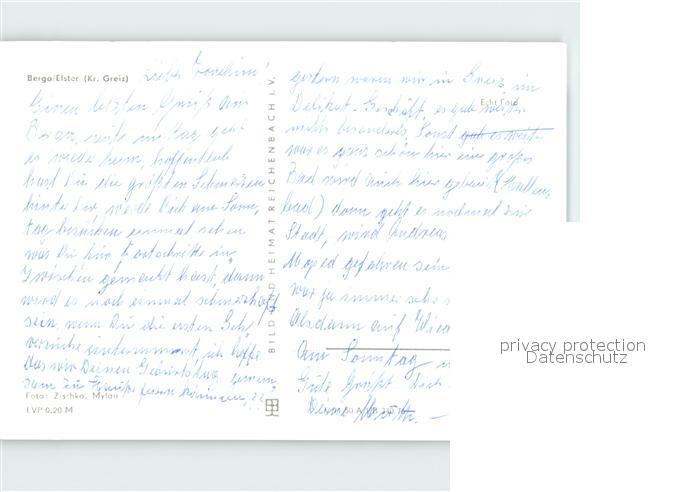 Berga/Elster (Kr. Greiz)
Lieber Joachim!
Einen letzten Gruß aus
Berga,
es wieder heim, hoffentlich
hast Du die größten Schmerzen
hinter Dir, werde Dich am Sonn,
tag besuchen einmal sehen
was Du für Fortschritte in,
zwischen gemacht hast, dann
wird es noch einmal schmerzhaft
sein, wenn Du die ersten Geh,
versuche unternimmst, ich hoffe
das wir Deinen Geburtstag
zu Hause feiern können,
Foto: Zischka, Mylau
EVP 0,20 M
BILD UND HEIMAT REICHENBACH I. V.
gestern waren wir in Greiz, im
Delikat-Geschäft, es gab
Echt Foto
nichts besonderes, Sonst
war es ganz schön hier ein großes
Bad wird auch hier gebaut (Hallen,
bad) dann geht es nochmal zur
Stadt, wird Andreas
Moped gefahren sein
war ja immer sehr
Alsdann auf Wied
Am Sonntag
Gute Grüßt Dich
Deine
privacy protection
Datenschutz